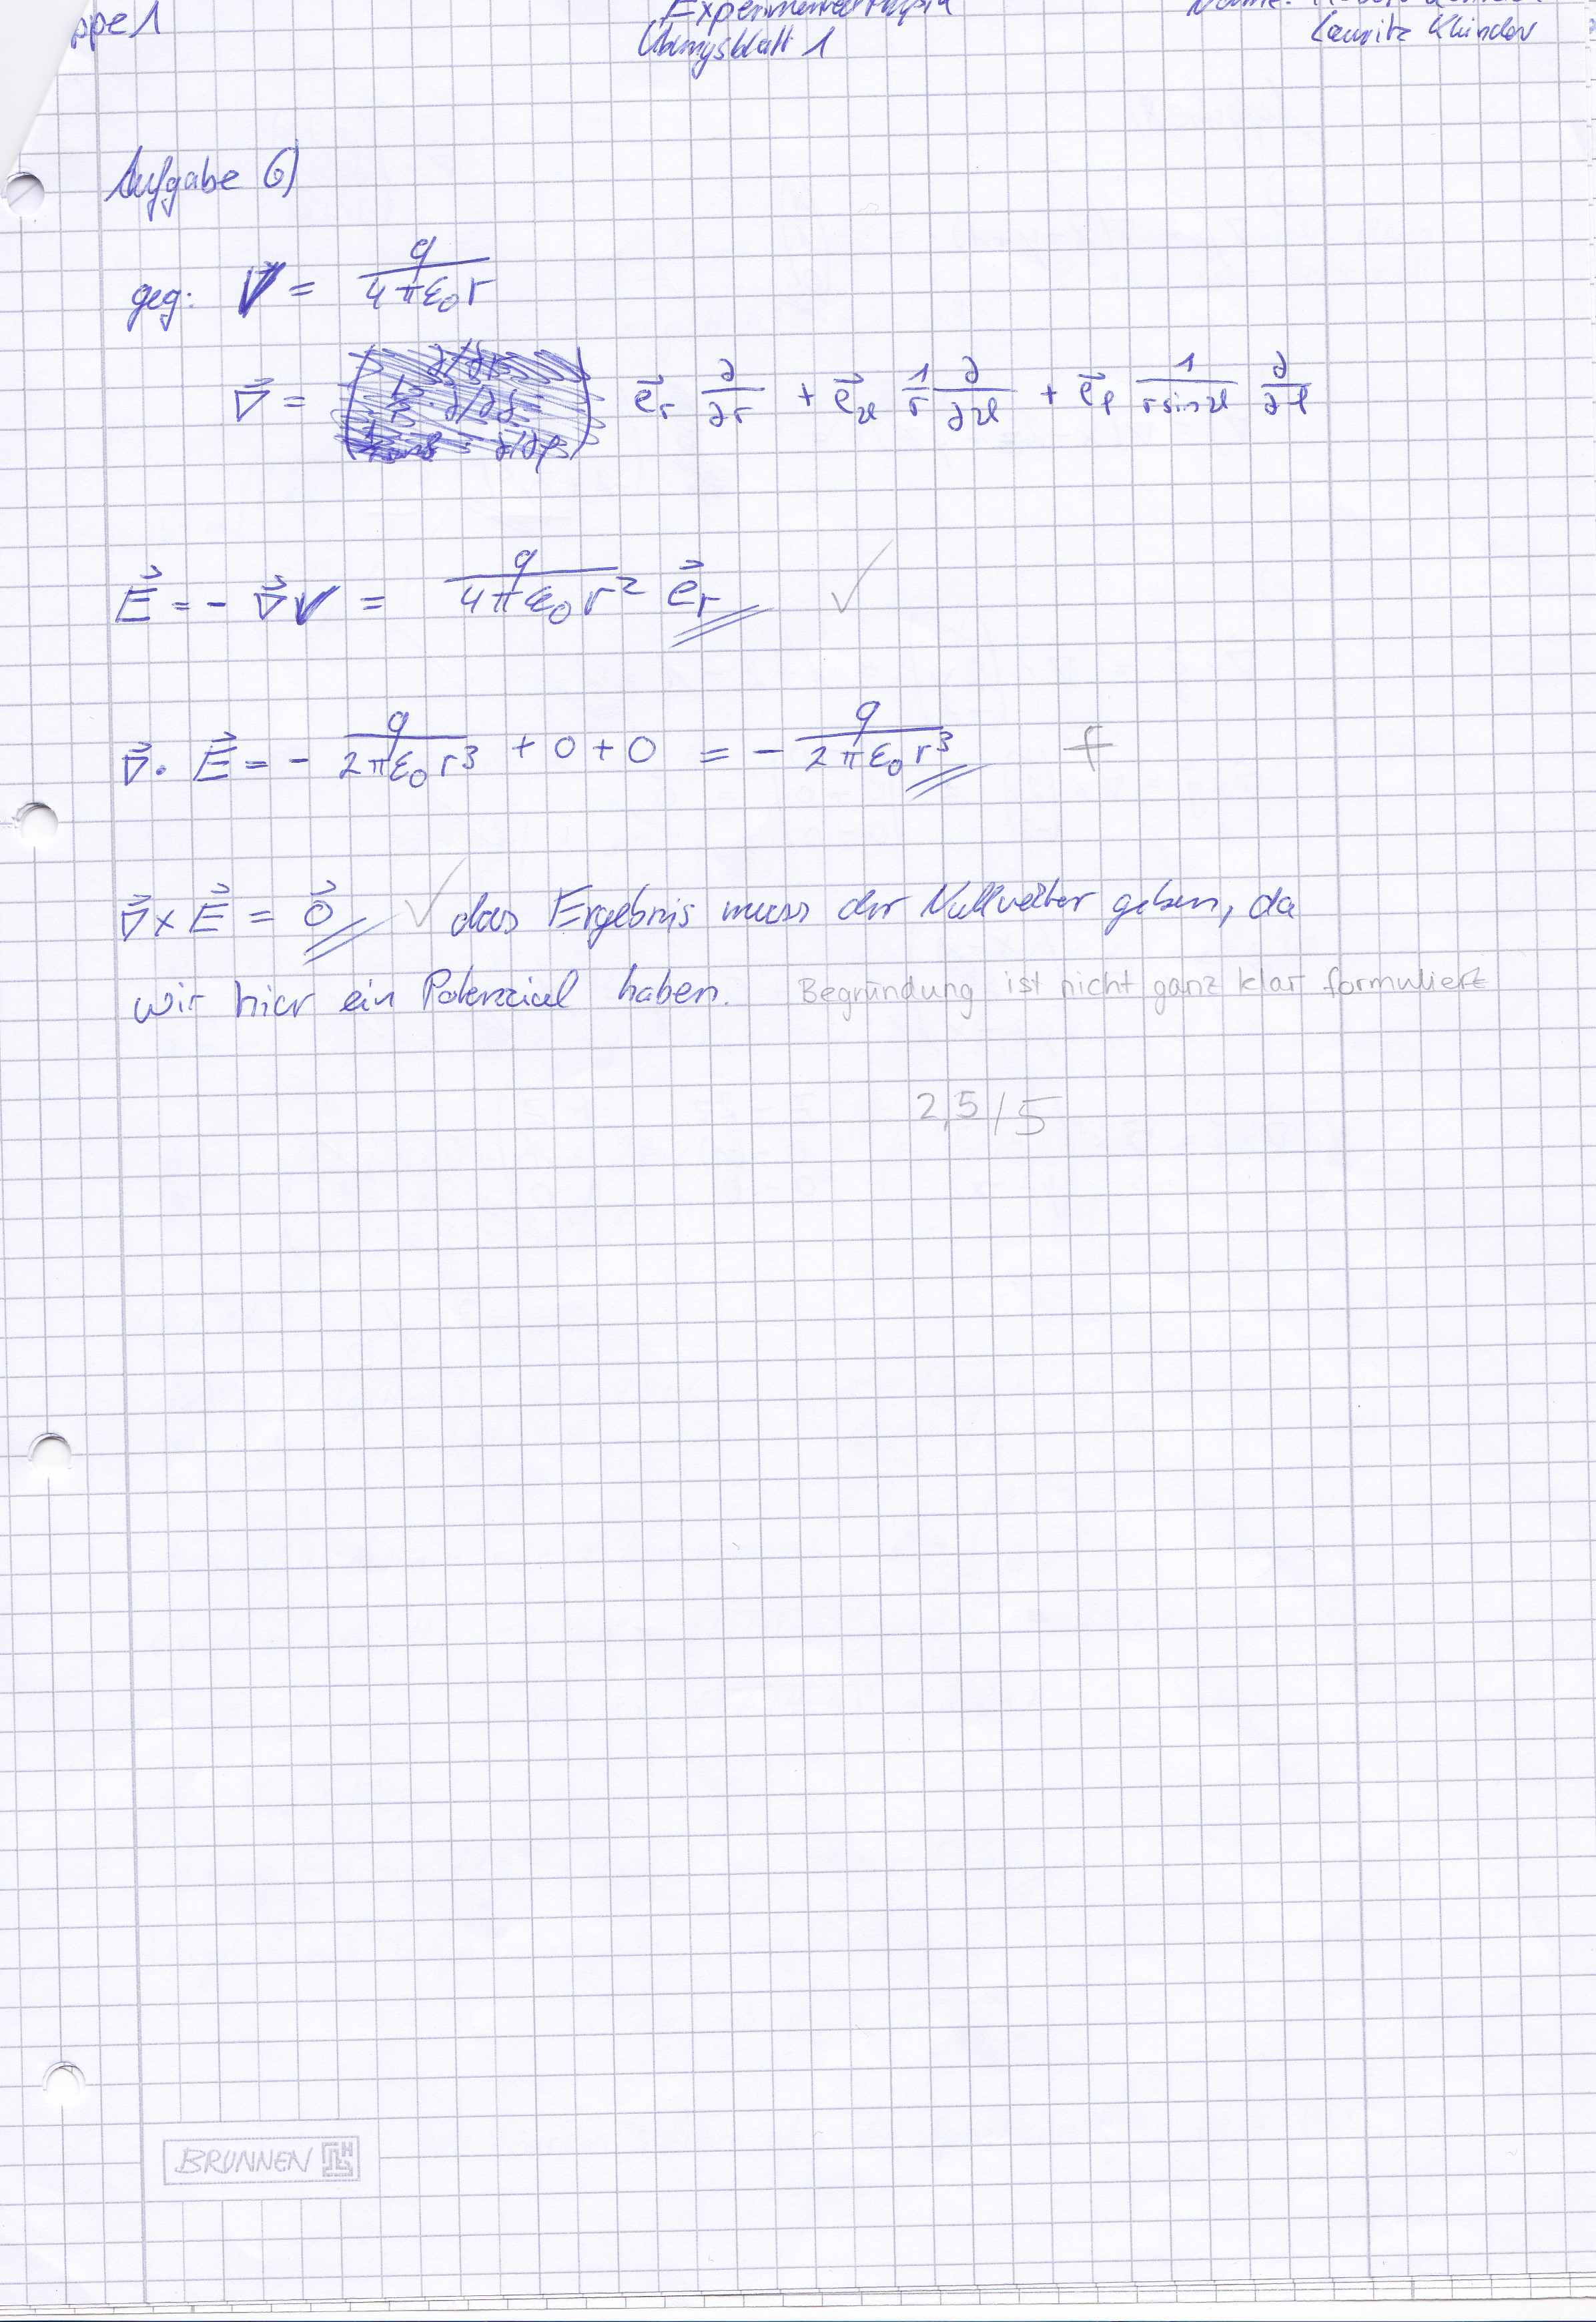 ppe 1
Übungsblatt 1
Aufgabe 6)
geg: V = q / (4πε₀r)
∇⃗ = e⃗ᵣ ∂/∂r + e⃗_ϑ 1/r ∂/∂ϑ + e⃗_φ 1/(r sinϑ) ∂/∂φ
E⃗ = - ∇⃗V = q / (4πε₀r²) e⃗ᵣ ✓
∇⃗ · E⃗ = - q / (2πε₀r³) + 0 + 0 = - q / (2πε₀r³) f
∇⃗ × E⃗ = 0⃗ ✓ das Ergebnis muss der Nullvektor geben, da
wir hier ein Potenzial haben. Begründung ist nicht ganz klar formuliert
2,5/5
BRUNNEN